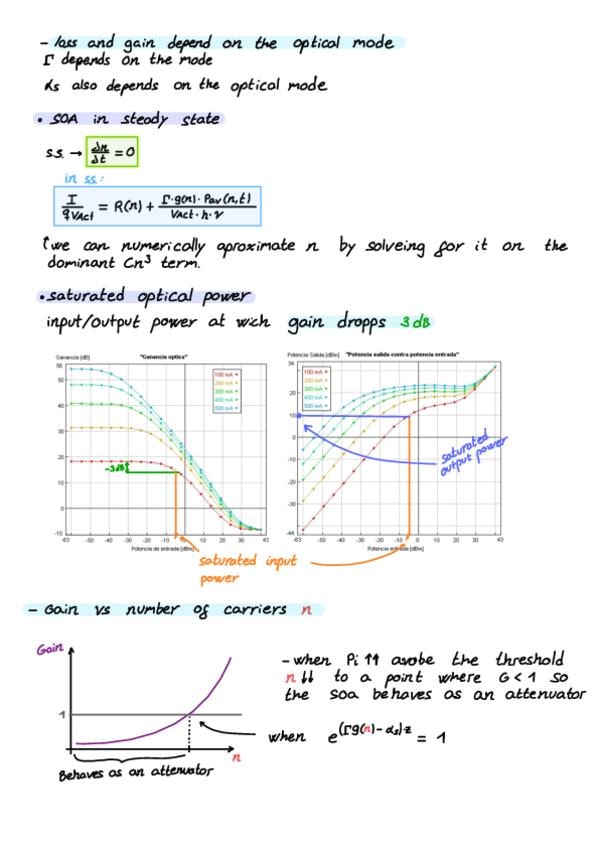 - loss and gain depend on the optical mode
Γ depends on the mode
αs also depends on the optical mode
• SOA in steady state
s.s. → dn/dt = 0
in ss:
I/qVAct = R(n) + Γ·g(n)·Pav(n,t)/VAct·h·ν
↑we can numerically aproximate n by solveing for it on the
dominant Cn³ term.
• saturated optical power
input/output power at wich gain dropps 3dB
Ganancia [dB] "Ganancia optica"
100 mA
200 mA
300 mA
400 mA
500 mA
56
50
40
30
20
10
0
-10
-3dB
-63 -50 -40 -30 -20 -10 0 10 20 30 43
Potencia de entrada [dBm]
Potencia Salida [dBm] "Potencia salida contra potencia entrada"
100 mA
200 mA
300 mA
400 mA
500 mA
34
20
10
0
-10
-20
-30
-44
saturated
output power
-63 -50 -40 -30 -20 -10 0 10 20 30 43
Potencia entrada [dBm]
saturated input
power
- Gain vs number of carriers n
Gain
1
n
Behaves as an attenuator
- when Pi ↑↑ avobe the threshold
n↓↓ to a point where G < 1 so
the soa behaves as an attenuator
when e^(Γg(n)-αs)·z = 1